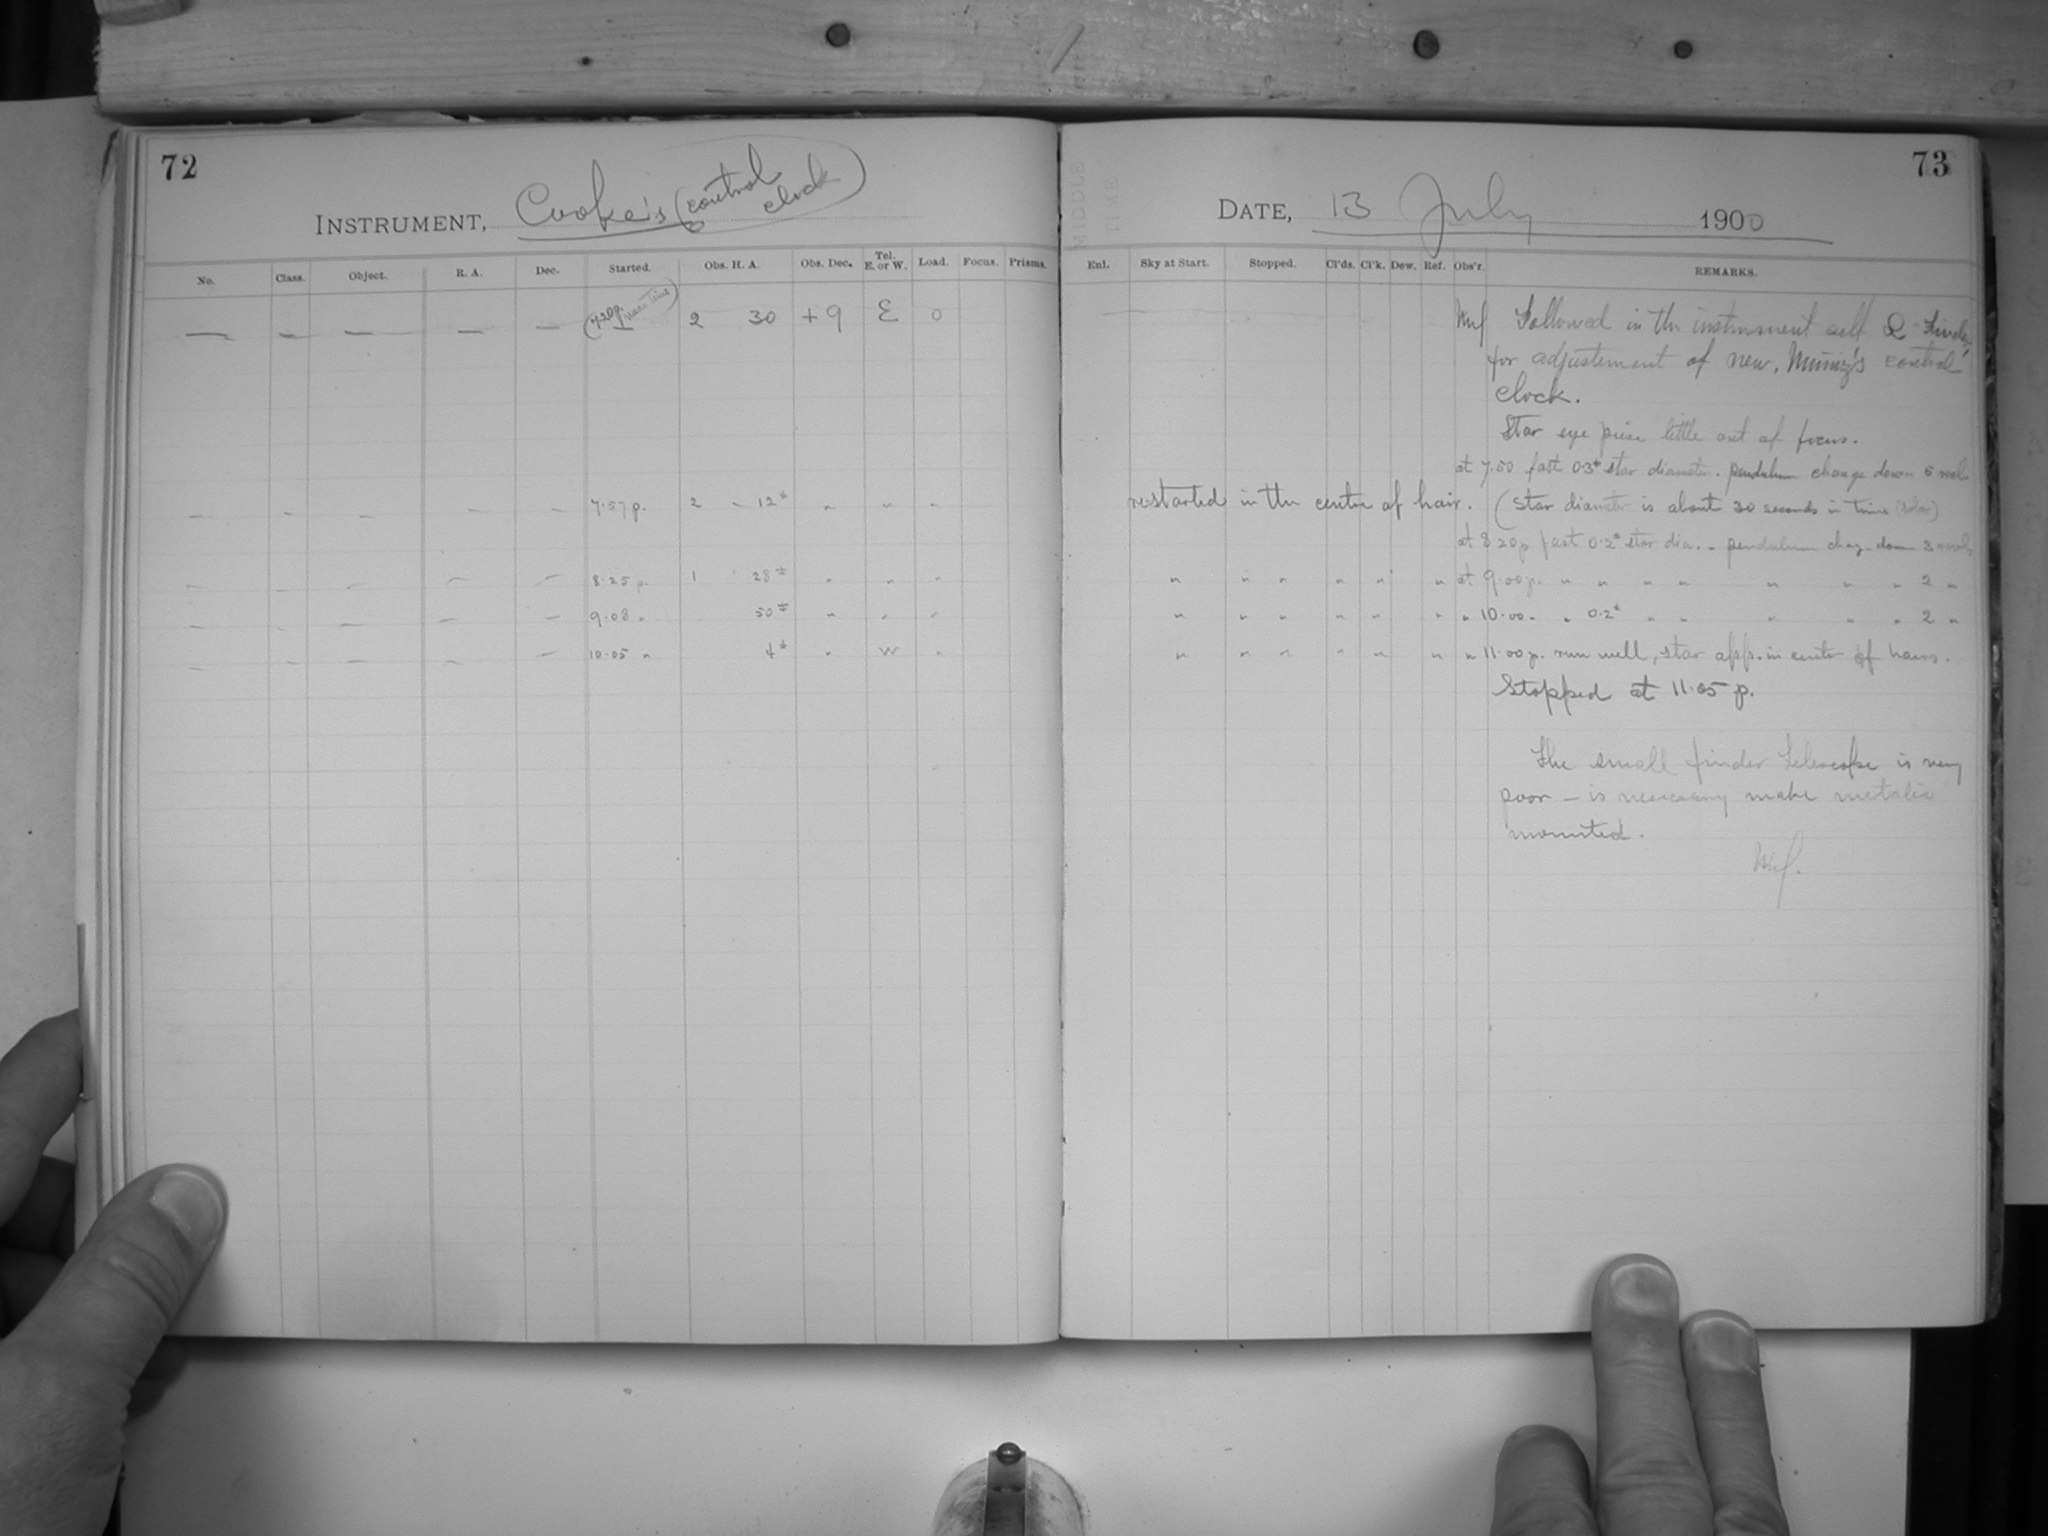 72
INSTRUMENT, Cooke's (control clock)
No. Class. Object. R. A. Dec. Started. Obs. H. A. Obs. Dec. Tel. E. or W. Load. Focus. Prisms.
— — — — — (7.20 p. mean time) 2 30 +9 E 0
— — — — — 7.57 p. 2 12± " " "
— — — — — 8.25 p. 1 28± " " "
— — — — — 9.08 " 50± " " "
— — — — — 10.05 " 4± " W "
73
DATE, 13 July 1900
Enl. Sky at Start. Stopped. Cl'ds. Cl'k. Dew. Ref. Obs'r. REMARKS.
Followed in the instrument self
for adjustement of new, Muñiz's control
clock.
Star eye piese little out of focus.
at 7.50 fast 0.3± star diameter. pendulum change down 6
re-started in the centre of hair. (star diameter is about 30 seconds in time
at 8 20 p fast 0.2± star dia. - pendulum chang. down 3
" " " " " " at 9.00 p. " " " " " " " 2 "
" " " " " " " 10.00 " " 0.2± " " " " " 2 "
" " " " " " " 11.00 p. run well, star app. in center of hairs.
Stopped at 11.05 p.
The small finder telescope is very
poor — is necessary make metalic
mounted.